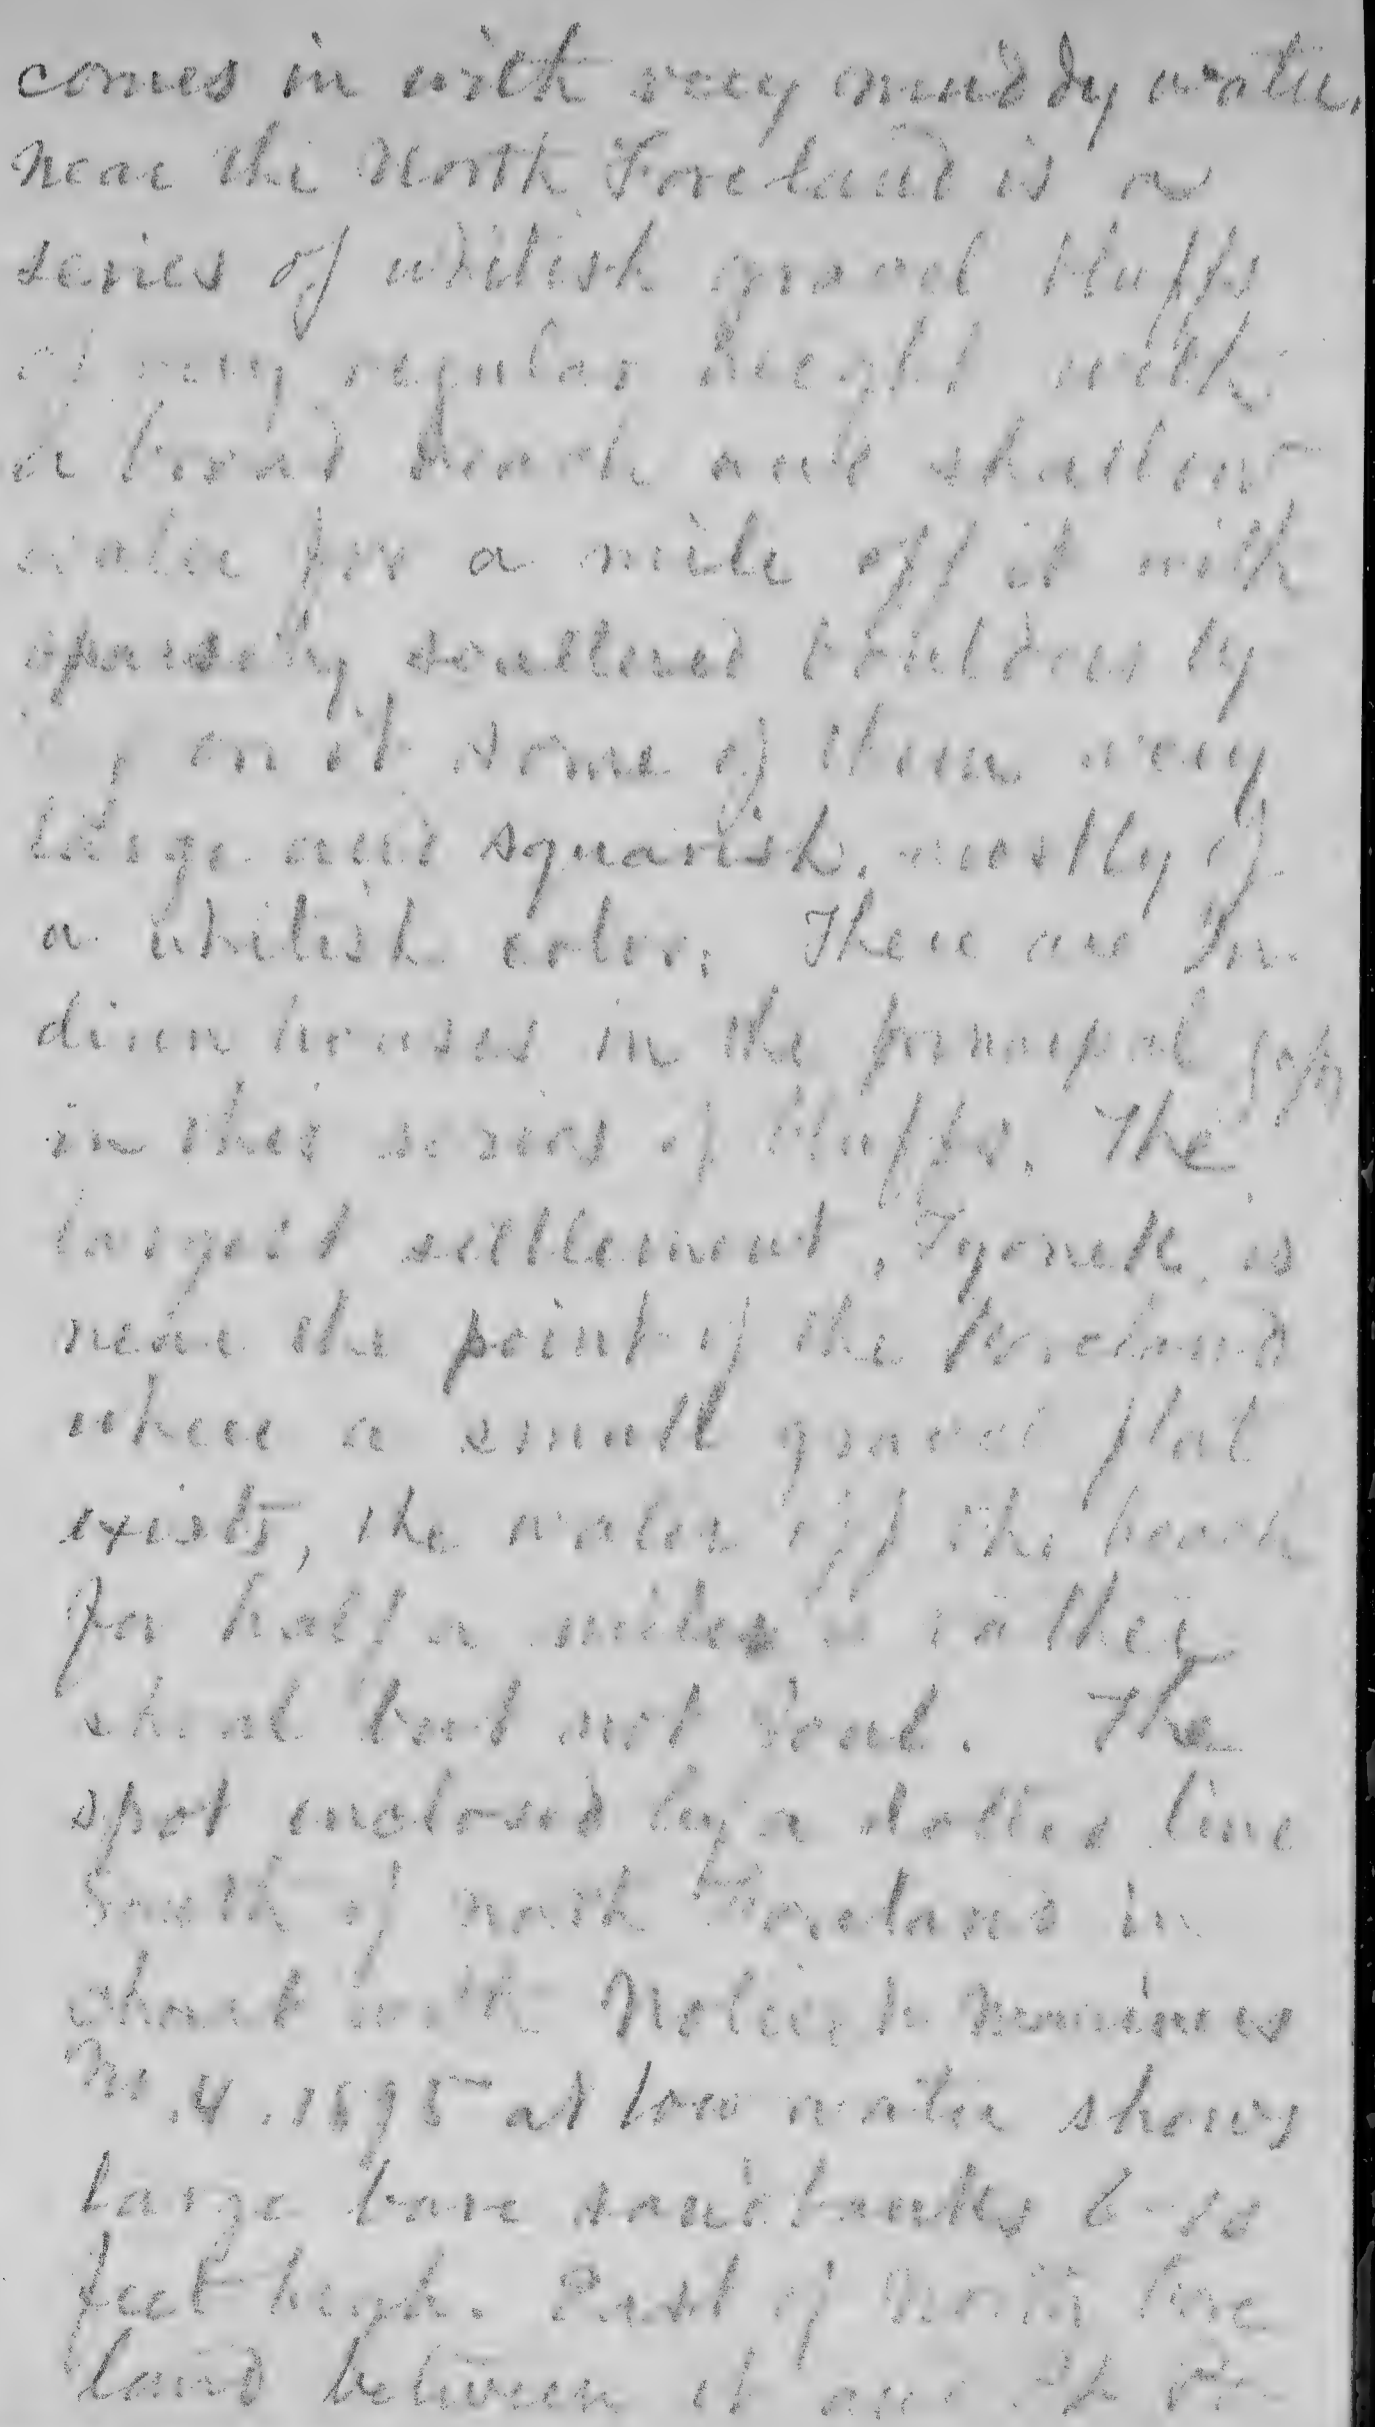 comes in with very muddy water.
Near the North Foreland is a
series of whitish gravel bluffs
of very regular height with
a broad beach and shallow
water for a mile off it with
sparsely scattered boulders ly
on it some of them very
large and squarish, mostly of
a whitish color. There are In-
dian houses in the principal gaps
in this series of bluffs. The
largest settlement, Tyonek, is
near the point of the Foreland
where a small gravel flat
exists, the water off the beach
for half a mile is rather
shoal but not foul. The
spot enclosed by a dotted line
South of North Foreland in
chart with Notice to Mariners
No. 4. 1895 at low water shows
large bare sandbanks 6-10
feet high. East of North Fore
land between it and